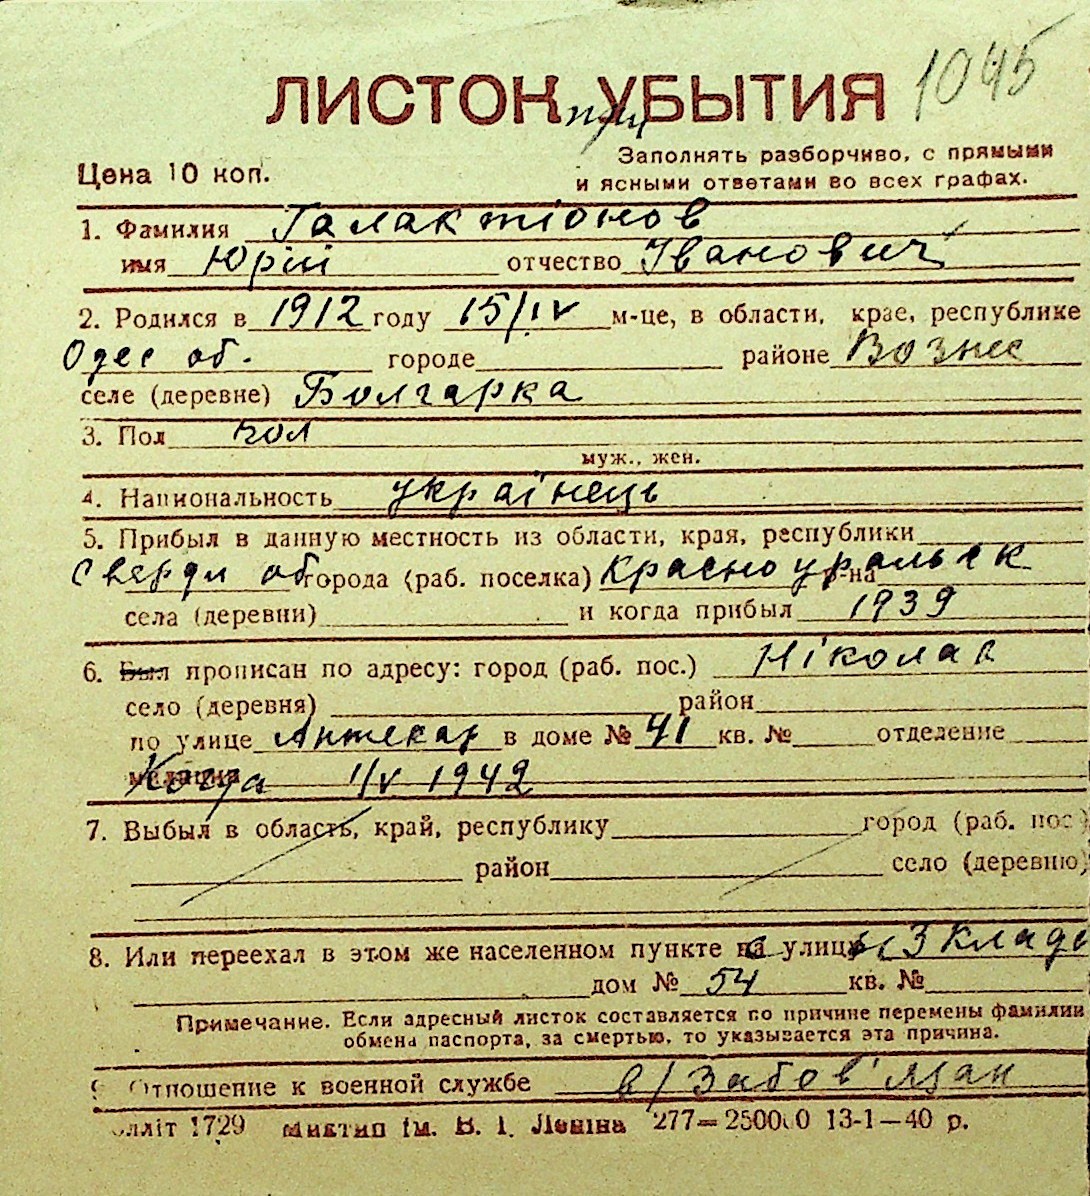 1045
ЛИСТОК при УБЫТИЯ
Заполнять разборчиво, с прямыми
Цена 10 коп.
и ясными ответами во всех графах.
1. Фамилия Галактіонов
имя Юрій отчество Іванович
2. Родился в 1912 году 15/IV м-це, в области, крае, республике
Одес об. городе районе Вознес
селе (деревне) Болгарка
3. Пол чол
муж., жен.
4. Национальность українець
5. Прибыл в данную местность из области, края, республики
Свердл об. города (раб. поселка) Красноуральск р-на
села (деревни) и когда прибыл 1939
6. Был прописан по адресу: город (раб. пос.) Ніколаев
село (деревня) район
по улице Аптекар в доме № 41 кв. № отделение
милиции Когда 1/V 1942
7. Выбыл в область, край, республику город (раб. пос.)
район село (деревню)
8. Или переехал в этом же населенном пункте с улицы 3 Кладб
дом № 54 кв. №
Примечание. Если адресный листок составляется по причине перемены фамилии
обмена паспорта, за смертью, то указывается эта причина.
9. Отношение к военной службе в/забов'язан
олліт 1729 Миктип ім. В. І. Леніна 277—250000 13-1—40 р.